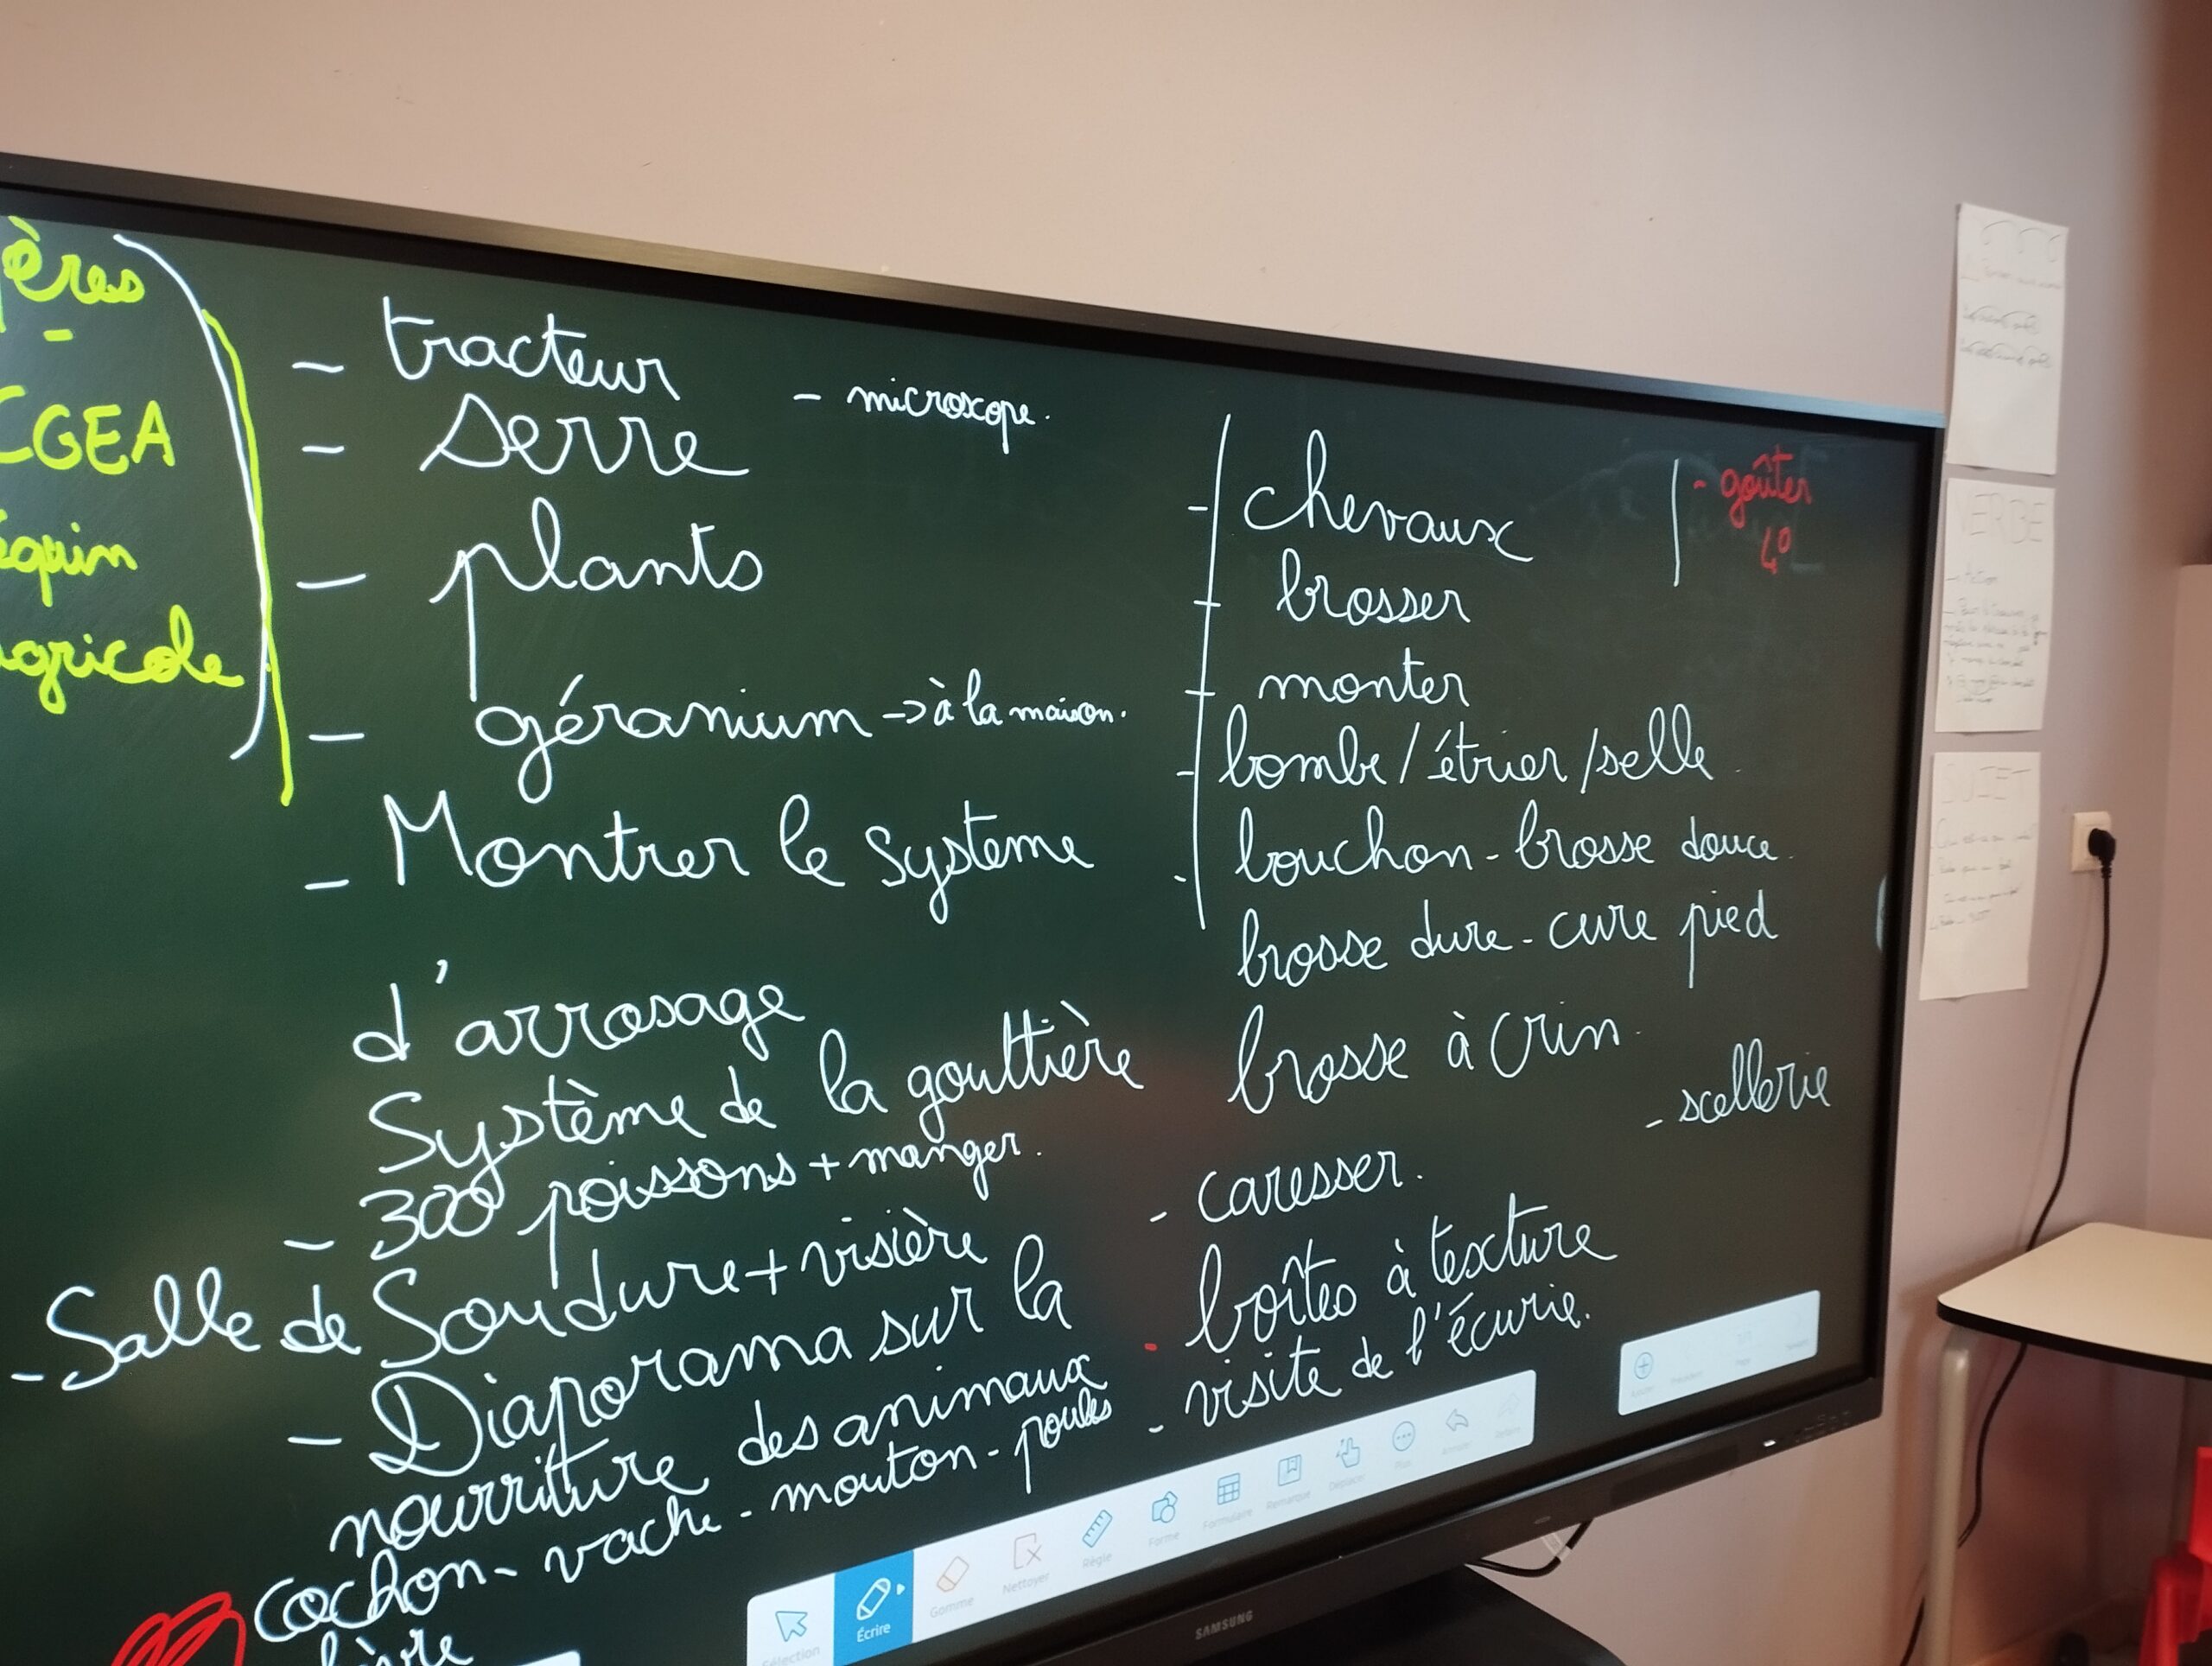 ères
CGEA
équin
agricole
- tracteur
- microscope.
- serre
- plants
- géranium -> à la maison.
- Montrer le système
d'arrosage
Système de la gouttière
- 300 poissons + manger.
- Salle de Soudure + visière
- Diaporama sur la
nourriture des animaux
cochon - vache - mouton - poules
- chevaux
- brosser
- monter
- bombe / étrier / selle
- bouchon - brosse douce.
brosse dure - cure pied
brosse à crin.
- scellerie
- caresser.
- boîtes à texture
- visite de l'écurie.
- goûter
4°
VERBE
Sélection
Écrire
Gomme
Nettoyer
Règle
Forme
Formulaire
Remarque
Déplacer
Plus
Annuler
Ajouter
SAMSUNG